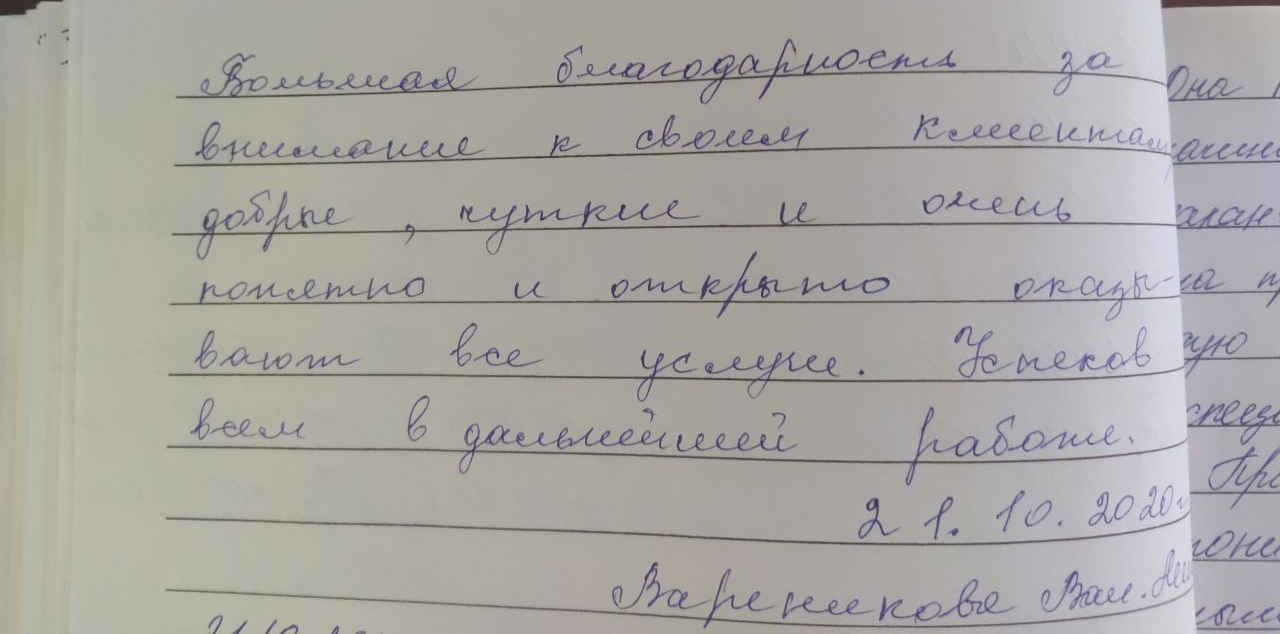 Большая благодарность за
внимание к своим клиентам
добрые, чуткие и очень
понятно и открыто оказы-
вают все услуги. Успехов
всем в дальнейшей работе.
21.10.2020г
Вареникова Вал.
Она